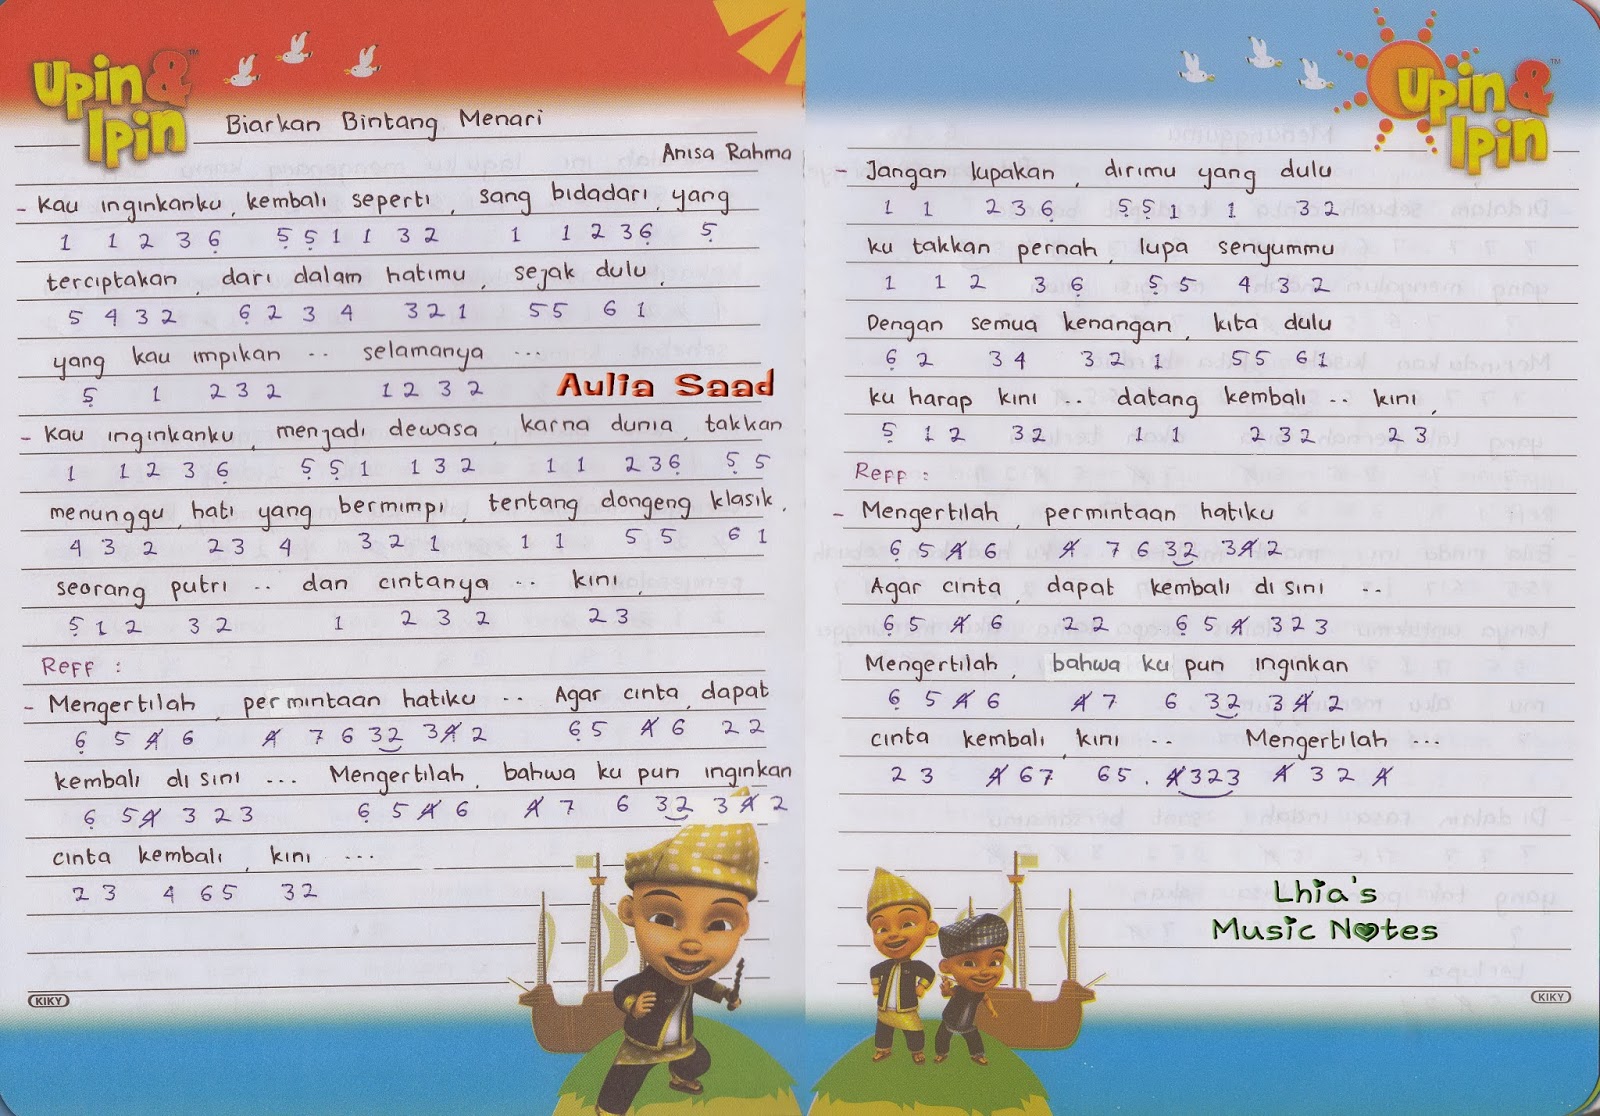 Upin &
Ipin
™
Biarkan Bintang Menari
Anisa Rahma
- Kau inginkanku, kembali seperti, sang bidadari, yang
1 1 2 3 6̣ 5̣ 5̣ 1 1 3 2 1 1 2 3 6̣ 5̣
terciptakan, dari dalam hatimu, sejak dulu,
5 4 3 2 6̣ 2 3 4 3 2 1 5 5 6 1
yang kau impikan .. selamanya ...
5̣ 1 2 3 2 1 2 3 2
Aulia Saad
- Kau inginkanku, menjadi dewasa, karna dunia, takkan
1 1 2 3 6̣ 5̣ 5̣ 1 1 3 2 1 1 2 3 6̣ 5̣ 5
menunggu, hati yang bermimpi, tentang dongeng klasik,
4 3 2 2 3 4 3 2 1 1 1 5 5 6 1
seorang putri .. dan cintanya .. kini,
5̣ 1 2 3 2 1 2 3 2 2 3
Reff :
- Mengertilah, permintaan hatiku .. Agar cinta, dapat
6̣ 5 4̸ 6 4̸ 7 6 3 2 3 4̸ 2 6̣ 5 4̸ 6 2 2
kembali di sini ... Mengertilah, bahwa ku pun inginkan
6̣ 5 4̸ 3 2 3 6̣ 5 4̸ 6 4̸ 7 6 3 2 3 4̸ 2
cinta kembali, kini ...
2 3 4 6 5 3 2
KIKY
Upin &
Ipin
™
- Jangan lupakan, dirimu yang dulu
1 1 2 3 6̣ 5̣ 5̣ 1 1 3 2
ku takkan pernah, lupa senyummu
1 1 2 3 6̣ 5̣ 5 4 3 2
Dengan semua kenangan, kita dulu
6̣ 2 3 4 3 2 1 5 5 6 1
ku harap kini .. datang kembali .. kini,
5̣ 1 2 3 2 1 1 2 3 2 2 3
Reff :
- Mengertilah, permintaan hatiku
6̣ 5 4̸ 6 4̸ 7 6 3 2 3 4̸ 2
Agar cinta, dapat kembali di sini ..
6̣ 5 4̸ 6 2 2 6̣ 5 4̸ 3 2 3
Mengertilah, bahwa ku pun inginkan
6̣ 5 4̸ 6 4̸ 7 6 3 2 3 4̸ 2
cinta kembali, kini .. Mengertilah ...
2 3 4̸ 6 7 6 5 . 4̸ 3 2 3 4̸ 3 2 4̸
Lhia's
Music Notes
KIKY